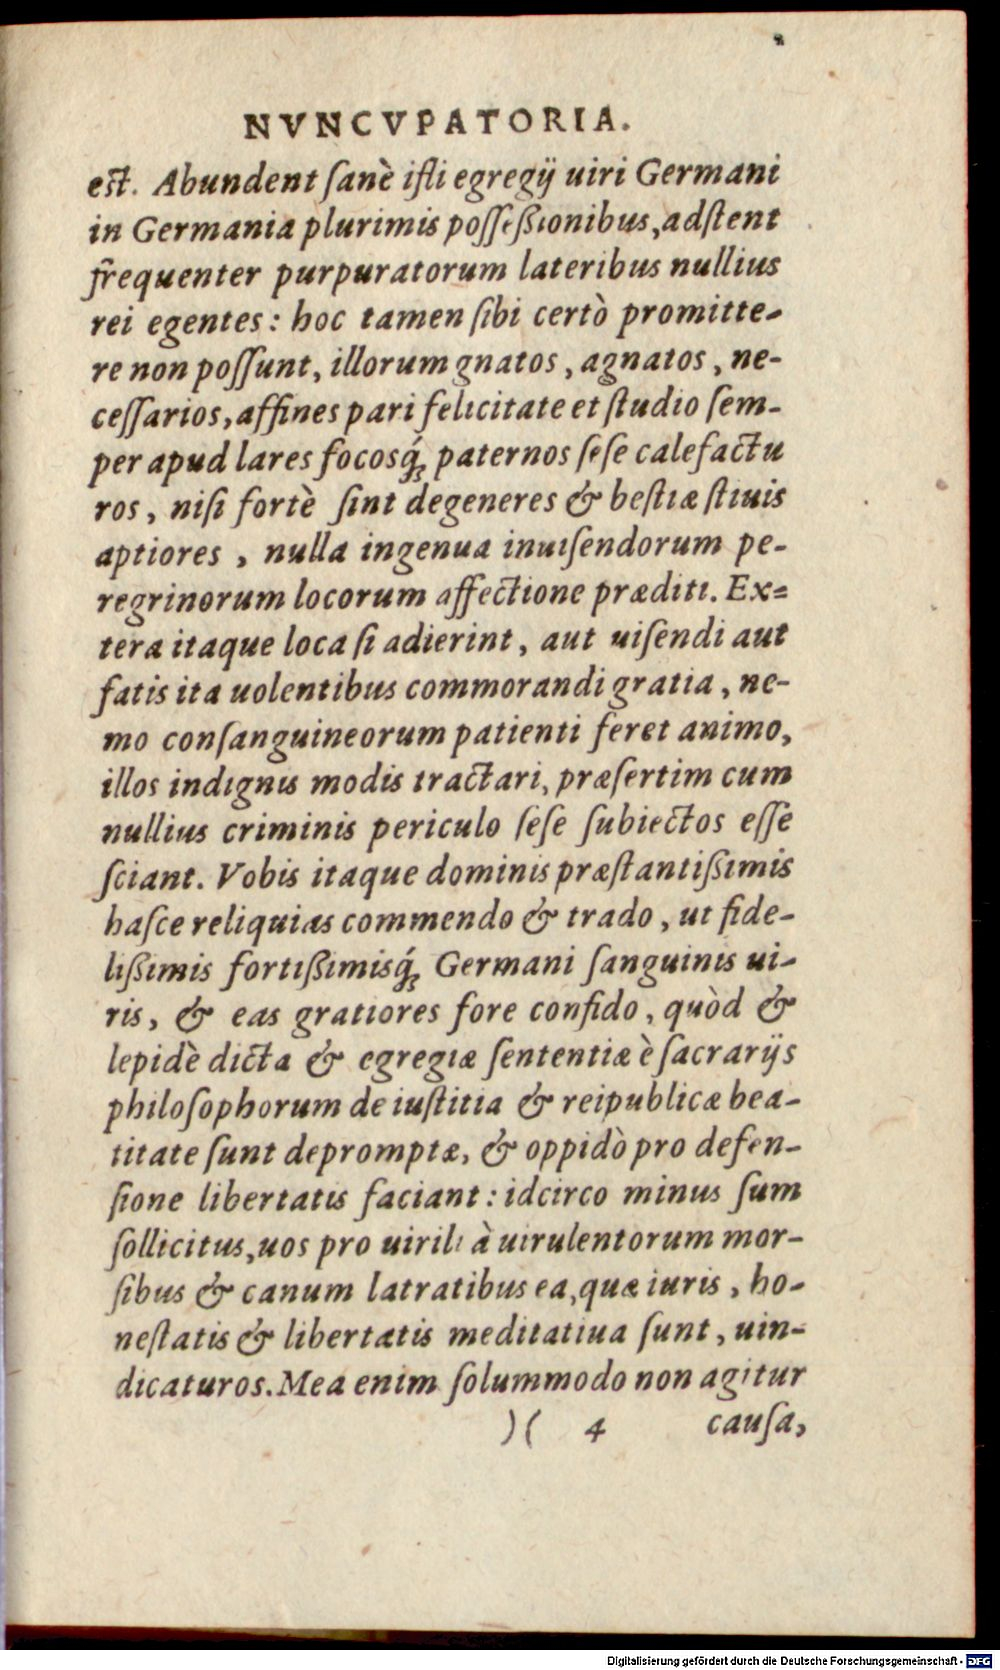 NVNCVPATORIA.
est. Abundent ſanè iſti egregij uiri Germani
in Germania plurimis poſſeßionibus, adſtent
frequenter purpuratorum lateribus nullius
rei egentes: hoc tamen ſibi certò promitte-
re non poſſunt, illorum gnatos, agnatos, ne-
ceſſarios, affines pari felicitate et ſtudio ſem-
per apud lares focosq́; paternos ſeſe calefactu
ros, niſi fortè ſint degeneres & beſtiæ ſtiuis
aptiores, nulla ingenua inuiſendorum pe-
regrinorum locorum affectione præditi. Ex=
tera itaque loca ſi adierint, aut uiſendi aut
fatis ita uolentibus commorandi gratia, ne-
mo conſanguineorum patienti feret animo,
illos indignis modis tractari, præſertim cum
nullius criminis periculo ſeſe ſubiectos eſſe
ſciant. Vobis itaque dominis præſtantißimis
haſce reliquias commendo & trado, ut fide-
lißimis fortißimisq́; Germani ſanguinis ui-
ris, & eas gratiores fore confido, quòd &
lepidè dicta & egregiæ ſententiæ è ſacrarijs
philoſophorum de iuſtitia & reipublicæ bea-
titate ſunt depromptæ, & oppidò pro defen-
ſione libertatis faciant: idcirco minus ſum
ſollicitus, uos pro uirili à uirulentorum mor-
ſibus & canum latratibus ea, quæ iuris, ho-
neſtatis & libertatis meditatiua ſunt, uin-
dicaturos. Mea enim ſolummodo non agitur
)( 4 cauſa,
Digitalisierung gefördert durch die Deutsche Forschungsgemeinschaft - DFG